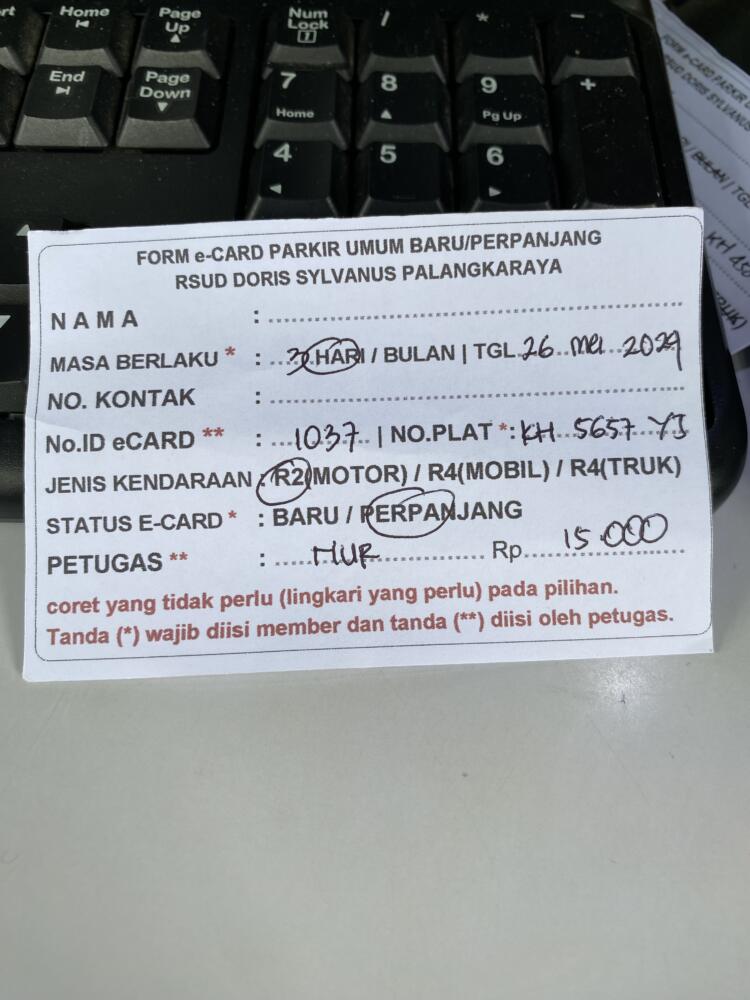 rt Home Page Up Num Lock / * -
End Page Down 7 Home 8 9 Pg Up +
4 5 6
FORM e-CARD PARKIR UMUM BARU/PERPANJANG
RSUD DORIS SYLVANUS PALANGKARAYA
NAMA :
MASA BERLAKU * : HARI / BULAN | TGL. 26 Mei
NO. KONTAK :
No.ID eCARD ** : 1037 | NO.PLAT *: KH 5657 YJ
JENIS KENDARAAN : R2(MOTOR) / R4(MOBIL) / R4(TRUK)
STATUS E-CARD * : BARU / PERPANJANG
PETUGAS ** : MUR Rp 15.000
coret yang tidak perlu (lingkari yang perlu) pada pilihan.
Tanda (*) wajib diisi member dan tanda (**) diisi oleh petugas.
FORM e-CARD PARKIR
RSUD DORIS SYLVANUS